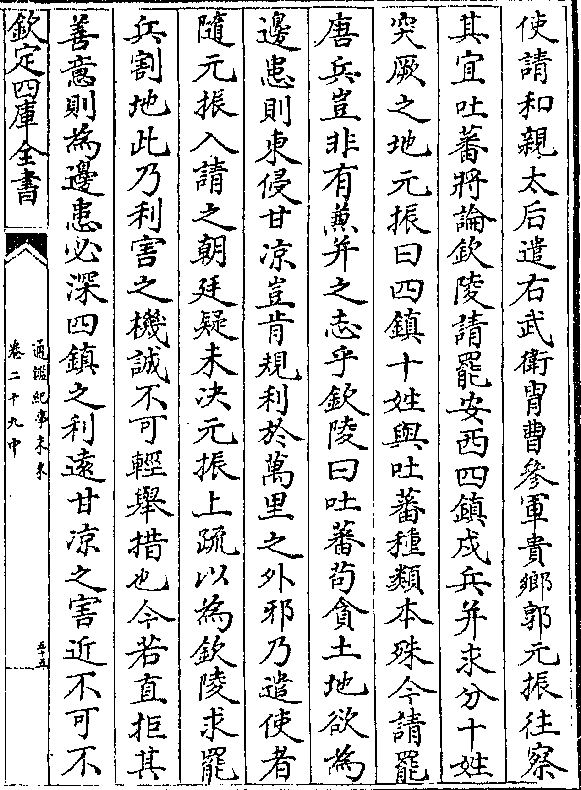 使請和親太后遣右武衛胄曹參軍貴鄉郭元振往察
其宜吐蕃將論欽陵請罷安西四鎮戍兵并求分十姓
突厥之地元振曰四鎮十姓與吐蕃種類本殊今請罷
唐兵豈非有兼并之志乎欽陵曰吐蕃苟貪土地欲為
邊患則東侵甘凉豈肯規利於萬里之外邪乃遣使者
隨元振入請之朝廷疑未决元振上疏以為欽陵求罷
兵割地此乃利害之機誠不可輕舉措也今若直拒其
善意則為邊患必深四鎮之利遠甘凉之害近不可不
欽定四庫全書
通鑑紀事本末
卷二十九中
五